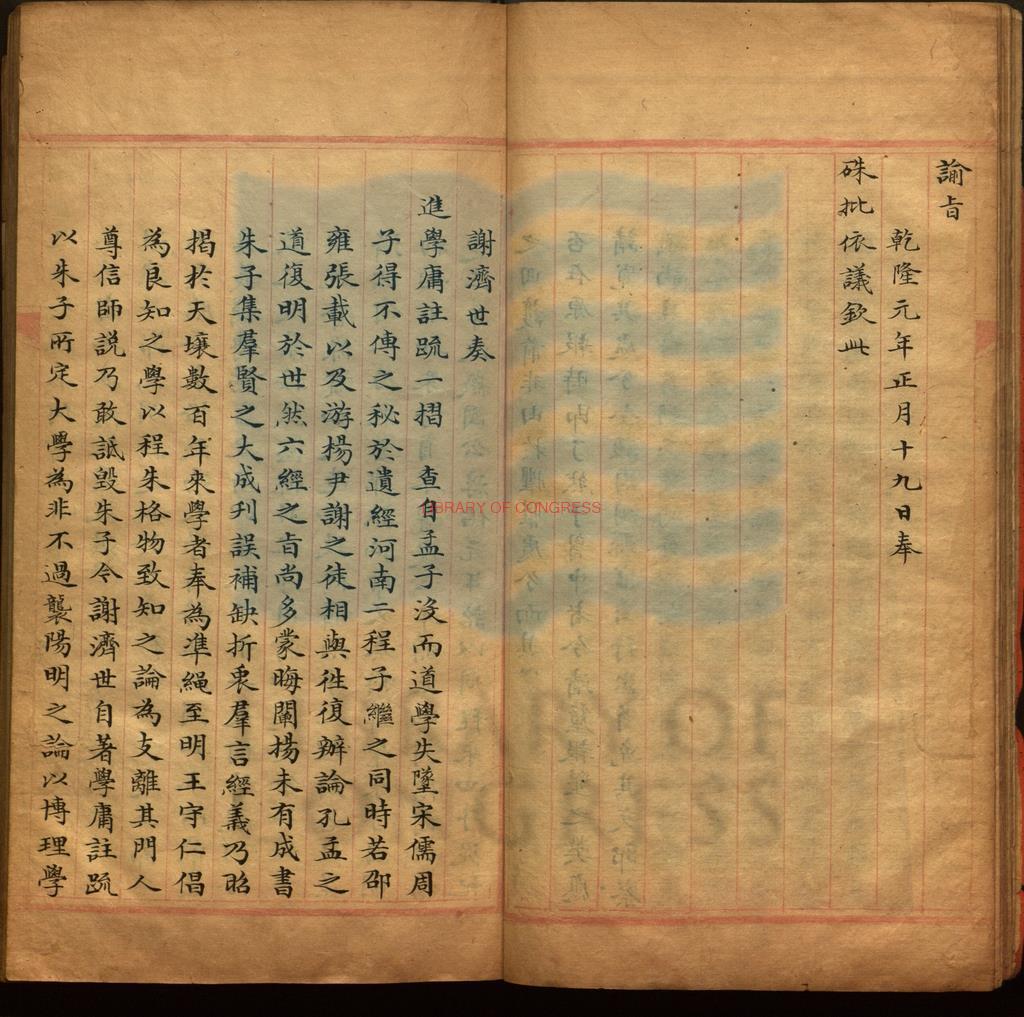 諭旨
乾隆元年正月十九日奉
硃批依議欽此
謝濟世奏
進學庸註䟽一摺　查自孟子沒而道學失墜宋儒周
子得不傳之秘於遺經河南二程子繼之同時若邵
雍張載以及游楊尹謝之徒相與徃復辦論孔孟之
道復明於世然六經之旨尚多蒙晦闡揚未有成書
朱子集羣賢之大成刋誤補缺折衷羣言經義乃昭
揭於天壤數百年來學者奉為準繩至明王守仁倡
為良知之學以程朱格物致知之論為支離其門人
尊信師説乃敢詆毀朱子今謝濟世自著學庸註䟽
以朱子所定大學為非不過襲陽明之論以博理學
LIBRARY OF CONGRESS